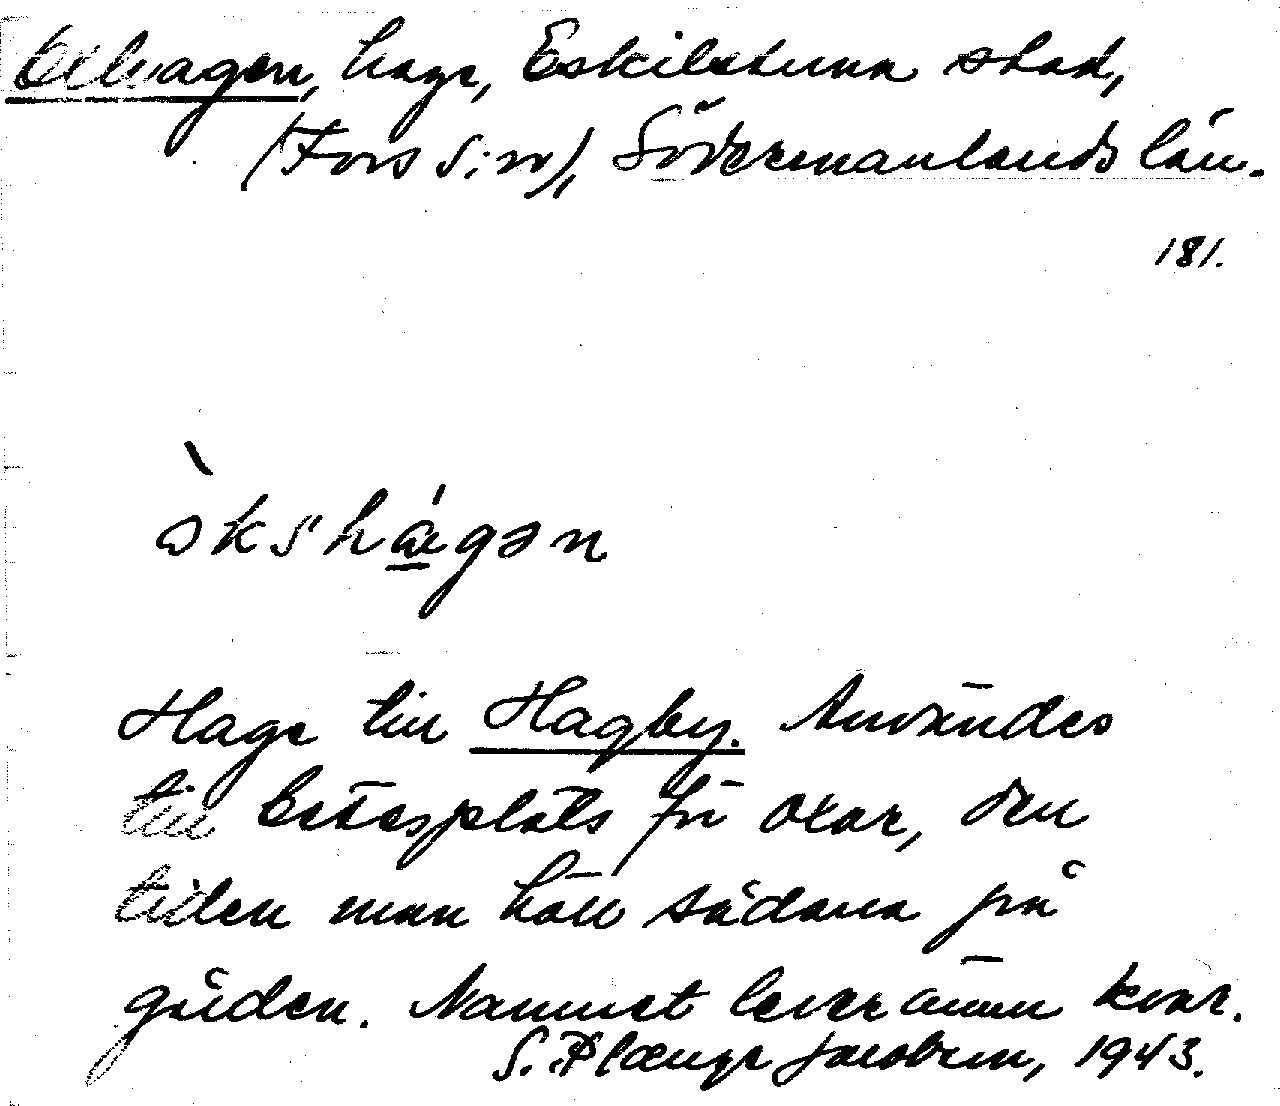 Oxhagen, hage, Eskilstuna stad,
(Fors s:n), Södermanlands län.
181.
òkshágən
Hage till Hagby. Användes
till betesplats för oxar, den
tiden man höll sådana på
gården. Namnet lever ännu kvar.
S. Plænge Jacobson, 1943.